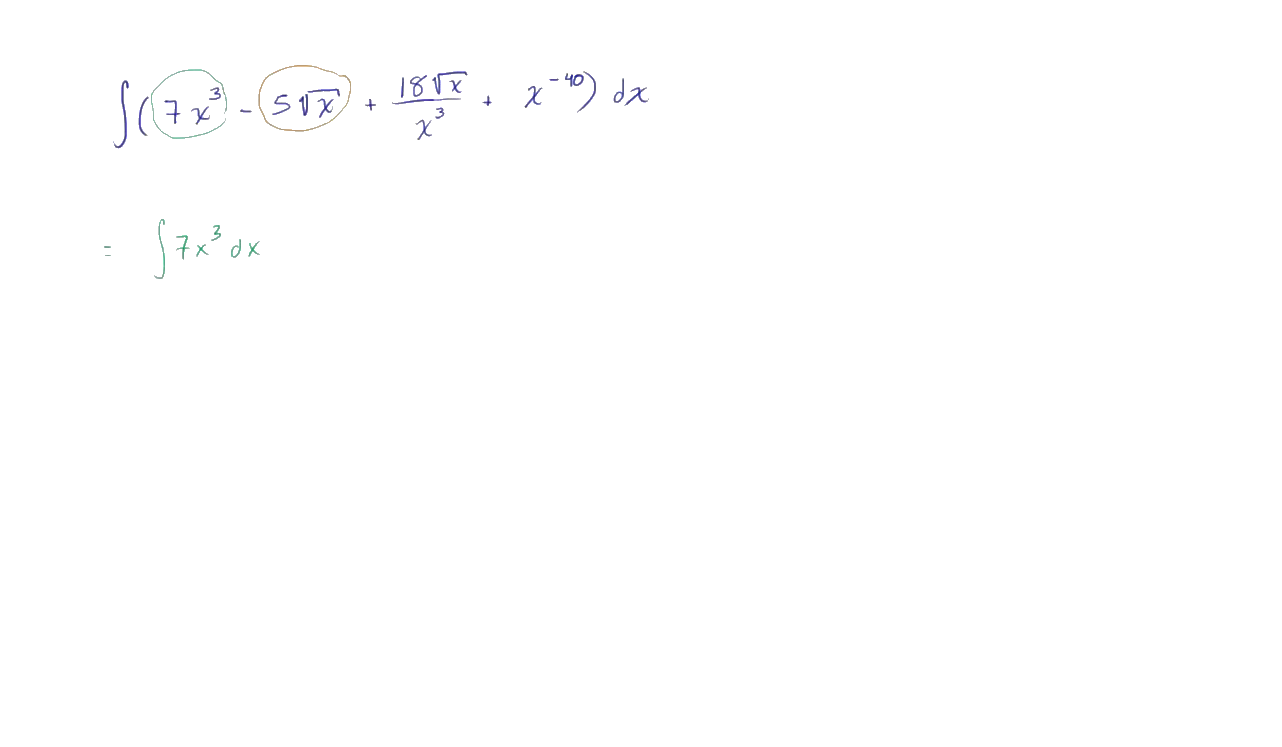 ∫ ( 7x³ - 5√x + 18√x / x³ + x⁻⁴⁰ ) dx
= ∫ 7x³ dx